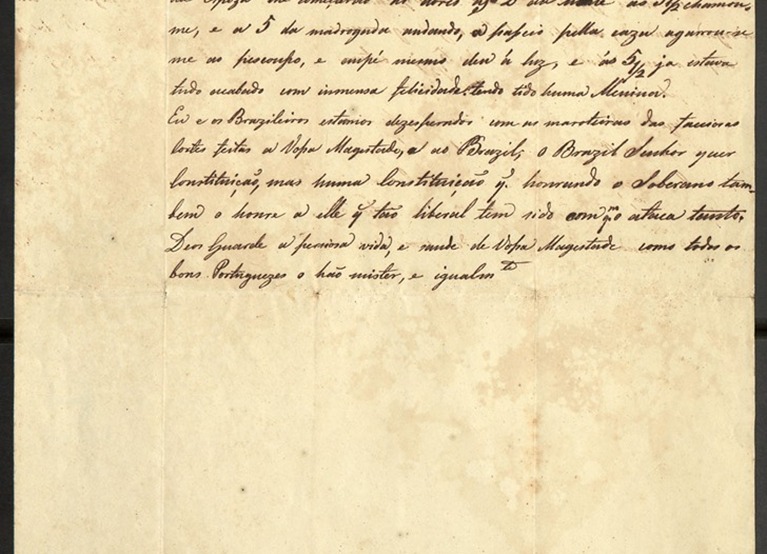 me, e a 5 da madrogada andando, a passeio pella caza agarrouse
me ao pescouso, e empé mesmo deu á luz, e ás 5½ ja estava
tudo acabado com immensa felicidade. tendo tido huma Menina.
Eu e os Brazileiros estamos dezesperados com as maroteiras das facciosas
Cortes feitas a Vossa Magestade, e ao Brazil; o Brazil Senhor quer
Constituição, mas huma Constituição q̃. honrando o Soberano tam-
bem o honre a elle q̃ tão liberal tem sido com q.m o ataca tanto.
Deos Guarde a preciosa vida, e saude de Vossa Magestade como todos os
bons Portuguezes o hão mister, e igualm.te